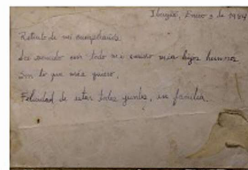 Ibagué, Enero 2 de 1984
Retrato de mi cumpleaños.
les mando con todo mi cariño mis hijos
Son lo que más quiero.
Felicidad de estar todos juntos, en familia.